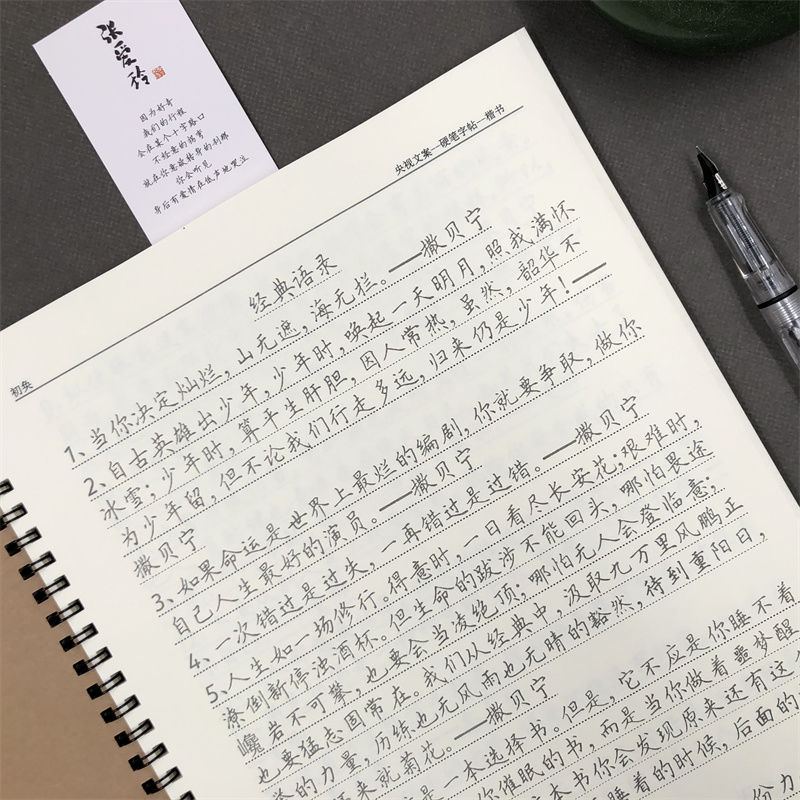 张爱玲
因为好奇
我们的行程
会在某个十字路口
不经意的拐弯
就在你意欲转身的刹那
你会听见
身后有爱情在低声地哭泣
央视文案—硬笔字帖—楷书
初矣
经典语录
1、当你决定灿烂，山无遮，海无拦。——撒贝宁
2、自古英雄出少年，少年时，唤起一天明月，照我满怀
冰雪；少年时，算平生肝胆，因人常热，虽然，韶华不
为少年留，但不论我们行走多远，归来仍是少年！——
撒贝宁
3、如果命运是世界上最烂的编剧，你就要争取，做你
自己人生最好的演员。——撒贝宁
4、一次错过是过失，一再错过是过错。——撒贝宁
5、人生如一场修行。得意时，一日看尽长安花；艰难时，
潦倒新停浊酒杯。但生命的跋涉不能回头，哪怕畏途
巉岩不可攀，也要会当凌绝顶；哪怕无人会登临意；
也要猛志固常在。我们从经典中，汲取九万里风鹏正
举的力量，历练也无风雨也无晴的豁然，待到重阳日，
还来就菊花。——撒贝宁
是一本选择书。但是，它不应是你睡不着
你催眠的书，而是当你做着噩梦醒
本书你会发现原来还有这
睡着的时候，后面的
份力